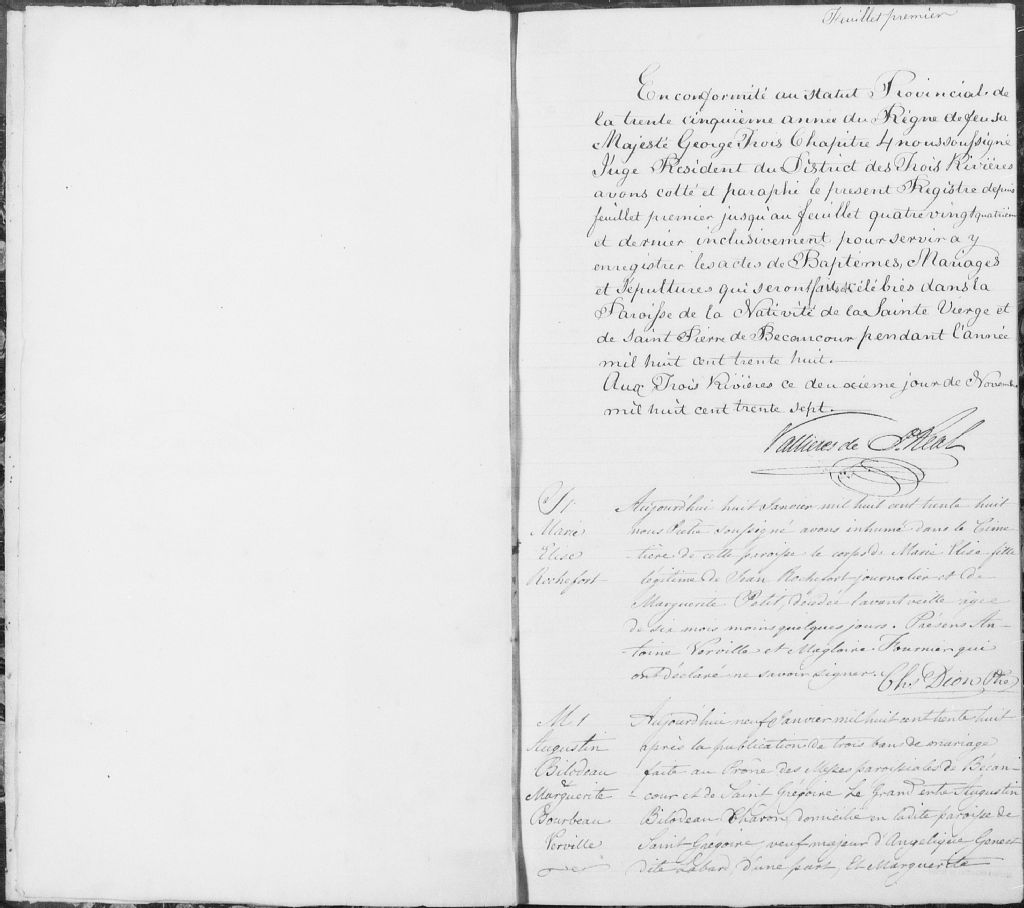 Feuillet premier
En conformité au statut Provincial de
la trente cinquième année du Règne de feu sa
Majesté George Trois Chapitre 4 nous soussigné
Juge Résident du District des Trois Rivières
avons cotté et paraphé le present Régistre depuis
feuillet premier jusqu'au feuillet quatre vingt quatrième
et dernier inclusivement pour servir a y
enregistrer les actes de Baptêmes, Mariages
et Sépultures qui seront faits et célébrés dans la
Paroisse de la Nativité de la Sainte Vierge et
de Saint Pierre de Becancour pendant l'année
mil huit cent trente huit.
Aux Trois Rivières ce deuxieme jour de Novemb.
mil huit cent trente sept.
Vallieres de St. Réal
S1
Marie
Elise
Rochefort
Aujourd'hui huit Janvier mil huit cent trente huit
nous Pretre soussigné avons inhumé dans le Cime-
-tière de cette paroisse le corps de Marie Elise fille
légitime de Jean Rochefort journalier et de
Marguerite Petit, décédée l'avant veille agée
de six mois moins quelques jours. Présens An-
-toine Verville et Magloire Fournier qui
ont déclaré ne savoir signer. Chs Dion Ptre
M1
Augustin
Bilodeau
Marguerite
Bourbeau
Verville
Aujourd'hui neuf Janvier mil huit cent trente huit
après la publication de trois bans de mariage
faite au Prône des Messes paroissiales de Bécan-
-cour et de Saint Grégoire Le Grand entre Augustin
Bilodeau Charon, domicilié en ladite paroisse de
Saint Grégoire, veuf majeur d'Angelique Genest
dite Labard d'une part, Et Marguerite